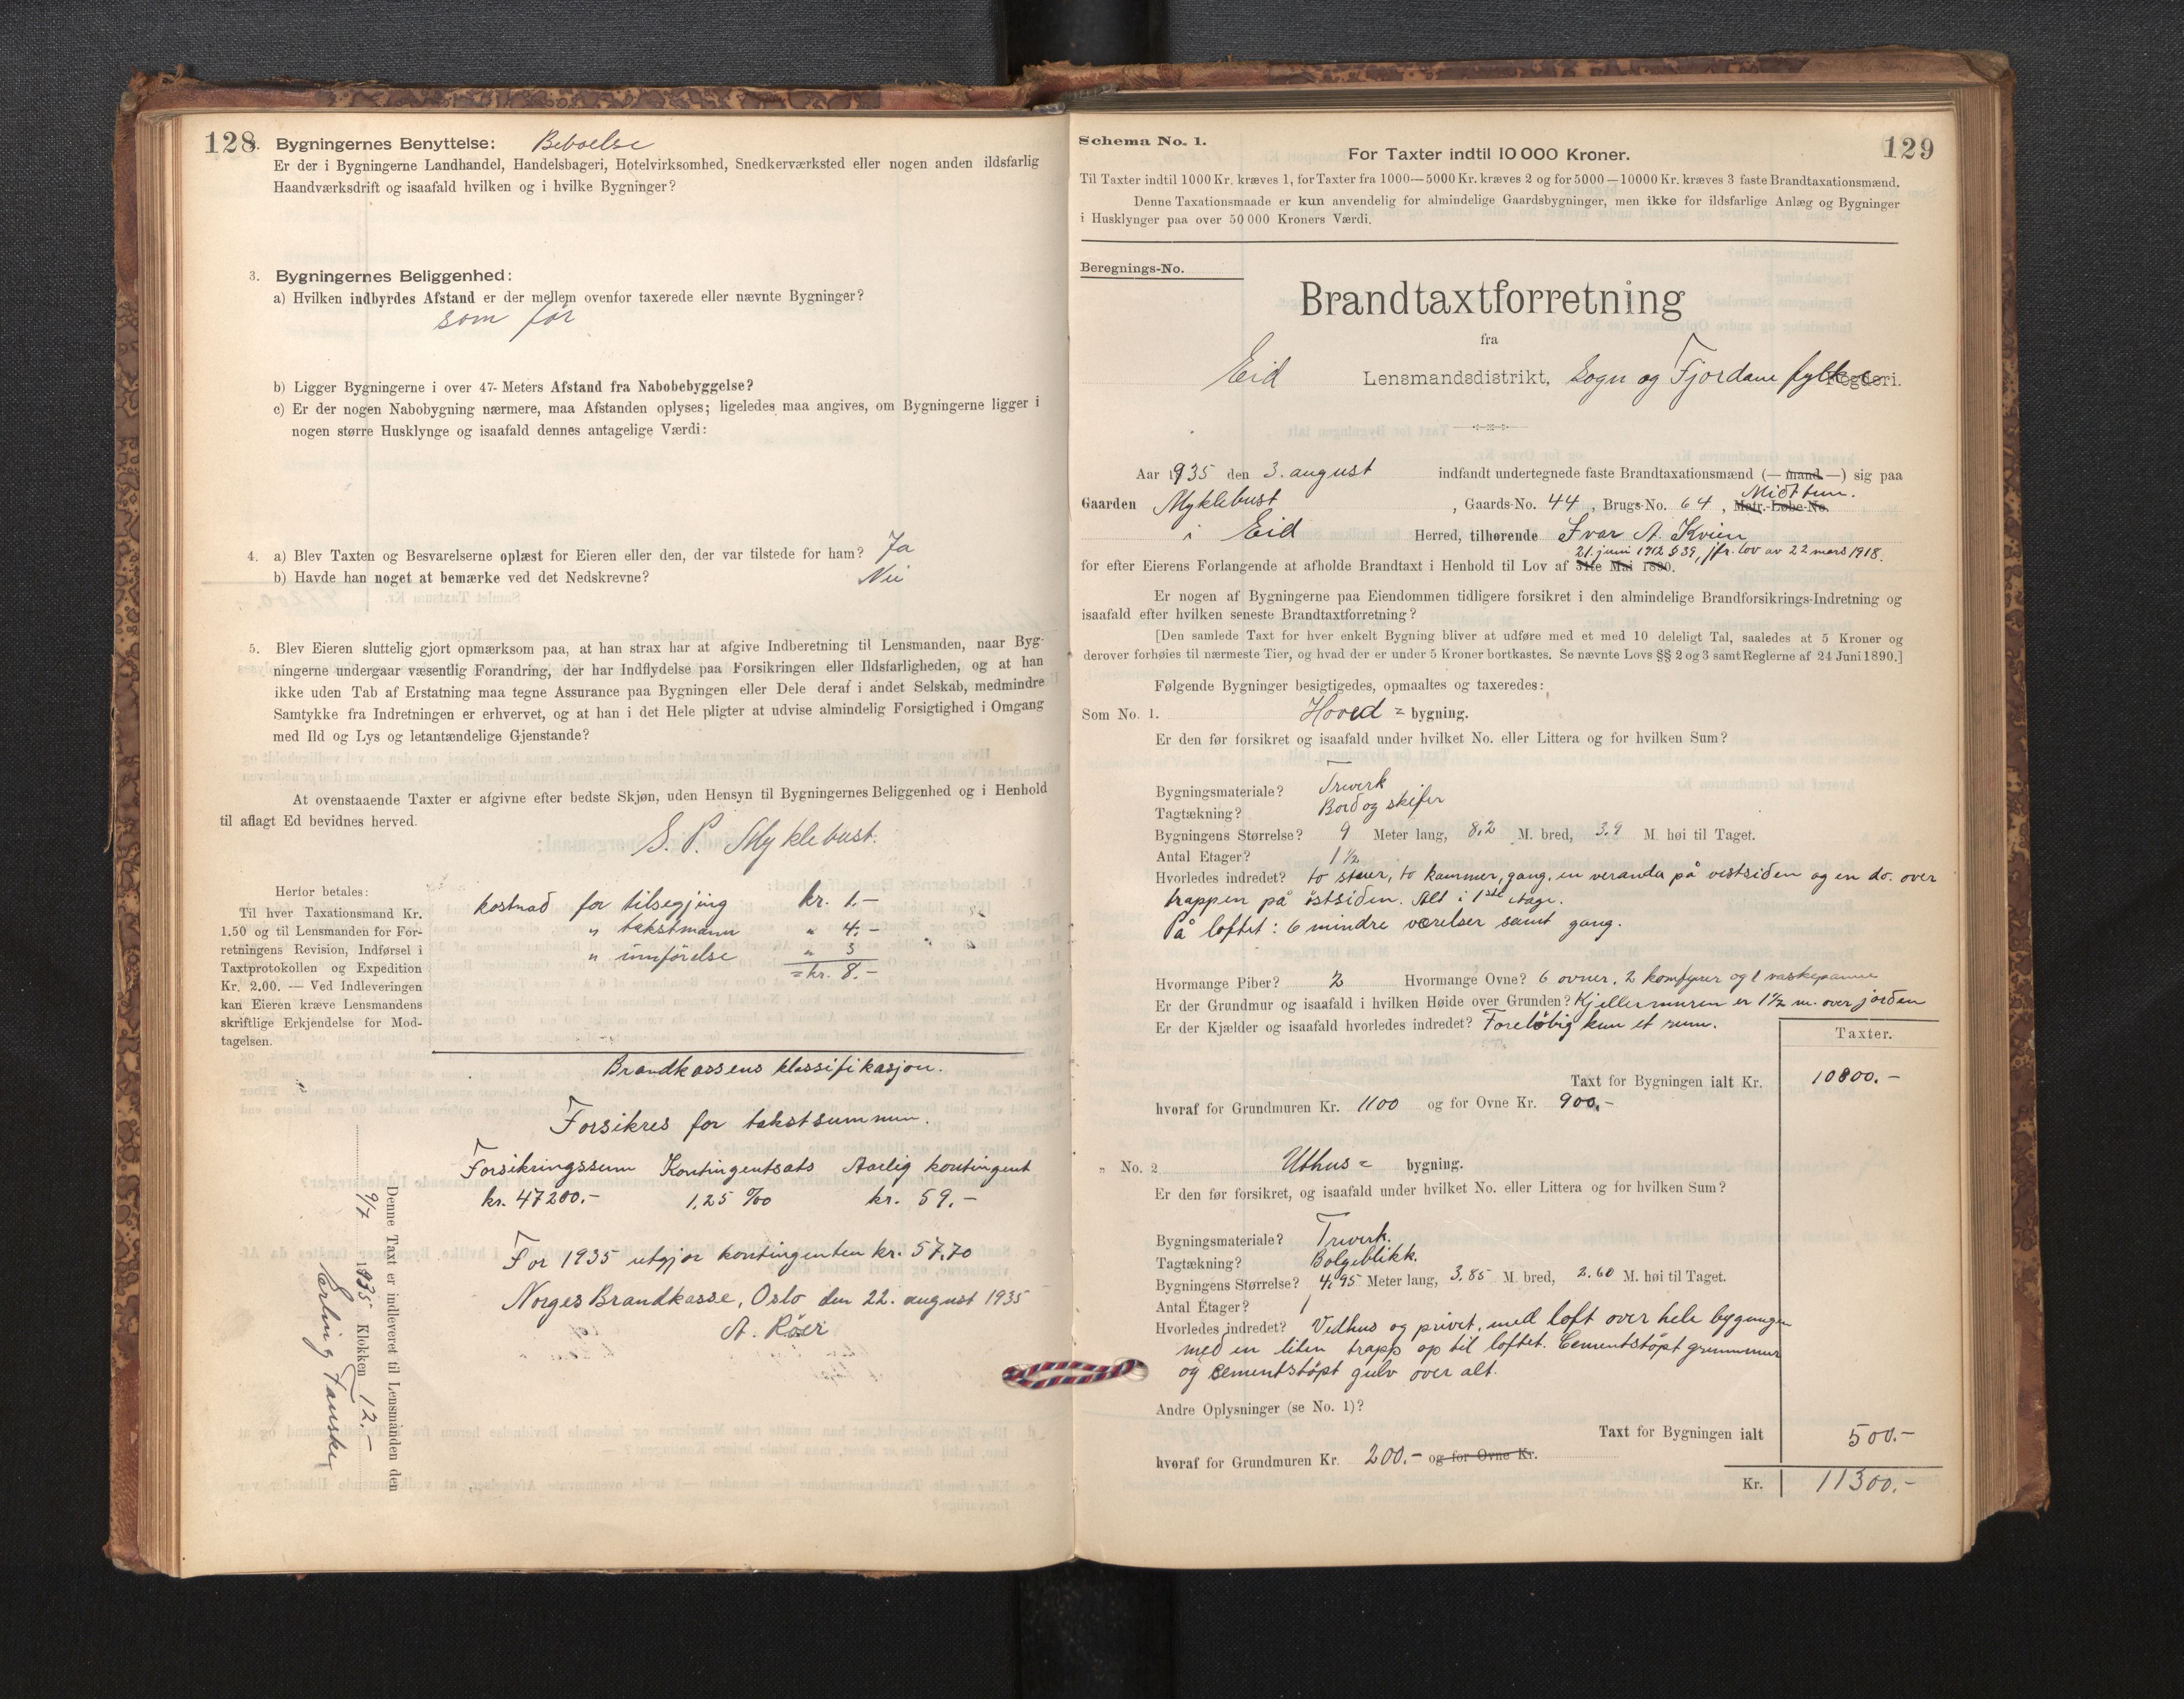 128
2. Bygningernes Benyttelse: Beboelse
Er der i Bygningerne Landhandel, Handelsbageri, Hotelvirksomhed, Snedkerværksted eller nogen anden ildsfarlig
Haandværksdrift og isaafald hvilken og i hvilke Bygninger?
3. Bygningernes Beliggenhed:
a) Hvilken indbyrdes Afstand er der mellem ovenfor taxerede eller nævnte Bygninger?
som før
b) Ligger Bygningerne i over 47- Meters Afstand fra Nabobebyggelse?
c) Er der nogen Nabobygning nærmere, maa Afstanden oplyses; ligeledes maa angives, om Bygningerne ligger i
nogen større Husklynge og isaafald dennes antagelige Værdi:
4. a) Blev Taxten og Besvarelserne oplæst for Eieren eller den, der var tilstede for ham? Ja
b) Havde han noget at bemærke ved det Nedskrevne? Nei
5. Blev Eieren sluttelig gjort opmærksom paa, at han strax har at afgive Indberetning til Lensmanden, naar Byg-
ningerne undergaar væsentlig Forandring, der har Indflydelse paa Forsikringen eller Ildsfarligheden, og at han
ikke uden Tab af Erstatning maa tegne Assurance paa Bygningen eller Dele deraf i andet Selskab, medmindre
Samtykke fra Indretningen er erhvervet, og at han i det Hele pligter at udvise almindelig Forsigtighed i Omgang
med Ild og Lys og letantændelige Gjenstande?
At ovenstaaende Taxter er afgivne efter bedste Skjøn, uden Hensyn til Bygningernes Beliggenhed og i Henhold
til aflagt Ed bevidnes herved.
S. P. Myklebust.
Herfor betales:
Til hver Taxationsmand Kr.
1.50 og til Lensmanden for For-
retningens Revision, Indførsel i
Taxtprotokollen og Expedition
Kr. 2.00. — Ved Indleveringen
kan Eieren kræve Lensmandens
skriftlige Erkjendelse for Mod-
tagelsen.
kostnad for tilsegjing kr. 1.-
" takstmann " 4.-
" innførelse " 3
= kr. 8.-
Brandkassens klassifikasjon.
Forsikres for takstsummen.
Forsikringssum Kontingentsats Aarlig kontingent
kr. 47200.- 1,25 ‰ kr. 59.-
For 1935 utgjør kontingenten kr. 57,70
Norges Brandkasse, Oslo den 22. august 1935
A. Röer
Denne Taxt er indleveret til Lensmanden den
9/7 1935 Klokken 12.-
Erling
Schema No. 1.
129
For Taxter indtil 10 000 Kroner.
Til Taxter indtil 1000 Kr. kræves 1, for Taxter fra 1000—5000 Kr. kræves 2 og for 5000—10000 Kr. kræves 3 faste Brandtaxationsmænd.
Denne Taxationsmaade er kun anvendelig for almindelige Gaardsbygninger, men ikke for ildsfarlige Anlæg og Bygninger
i Husklynger paa over 50 000 Kroners Værdi.
Beregnings-No.
Brandtaxtforretning
fra
Eid Lensmandsdistrikt, Sogn og Fjordane fylke Fogderi.
Aar 1935 den 3. august indfandt undertegnede faste Brandtaxationsmænd (— mand —) sig paa
Gaarden Myklebust, Gaards-No. 44, Brugs-No. 64, Matr.-Løbe-No. Midttun.
i Eid Herred, tilhørende Ivar A. Kvien
21. juni 1912 § 39, jfr. lov av 22 mars 1918.
for efter Eierens Forlangende at afholde Brandtaxt i Henhold til Lov af 31te Mai 1890.
Er nogen af Bygningerne paa Eiendommen tidligere forsikret i den almindelige Brandforsikrings-Indretning og
isaafald efter hvilken seneste Brandtaxtforretning?
[Den samlede Taxt for hver enkelt Bygning bliver at udføre med et med 10 deleligt Tal, saaledes at 5 Kroner og
derover forhøies til nærmeste Tier, og hvad der er under 5 Kroner bortkastes. Se nævnte Lovs §§ 2 og 3 samt Reglerne af 24 Juni 1890.]
Følgende Bygninger besigtigedes, opmaaltes og taxeredes:
Som No. 1. Hoved = bygning.
Er den før forsikret og isaafald under hvilket No. eller Littera og for hvilken Sum?
Bygningsmateriale? Treverk
Tagtækning? Bord og skifer
Bygningens Størrelse? 9 Meter lang, 8,2 M. bred, 3.9 M. høi til Taget.
Antal Etager? 1½
Hvorledes indredet? to stuer, to kammer, gang, en veranda på vestsiden og en do. over
trappen på östsiden. Alt i 1ste etage.
På loftet: 6 mindre værelser samt gang.
Hvormange Piber? 2 Hvormange Ovne? 6 ovner, 2 komfyrer og 1 vaskepanne
Er der Grundmur og isaafald i hvilken Høide over Grunden? Kjellermuren er 1½ m. over jorden
Er der Kjælder og isaafald hvorledes indredet? Foreløbig kun et rum.
Taxter.
Taxt for Bygningen ialt Kr. 10800.-
hvoraf for Grundmuren Kr. 1100 og for Ovne Kr. 900.-
" No. 2 Uthus = bygning.
Er den før forsikret, og isaafald under hvilket No. eller Littera og for hvilken Sum?
Bygningsmateriale? Treverk.
Tagtækning? Bølgeblikk.
Bygningens Størrelse? 4.95 Meter lang, 3.85 M. bred, 2.60 M. høi til Taget.
Antal Etager? 1
Hvorledes indredet? Vedhus og privet, med loft over hele bygningen
med en liten trapp op til loftet. Cementstöpt grunnmur
og cementstöpt gulv over alt.
Andre Oplysninger (se No. 1)?
Taxt for Bygningen ialt 500.-
hvoraf for Grundmuren Kr. 200.- og for Ovne Kr.
Kr. 11300.-